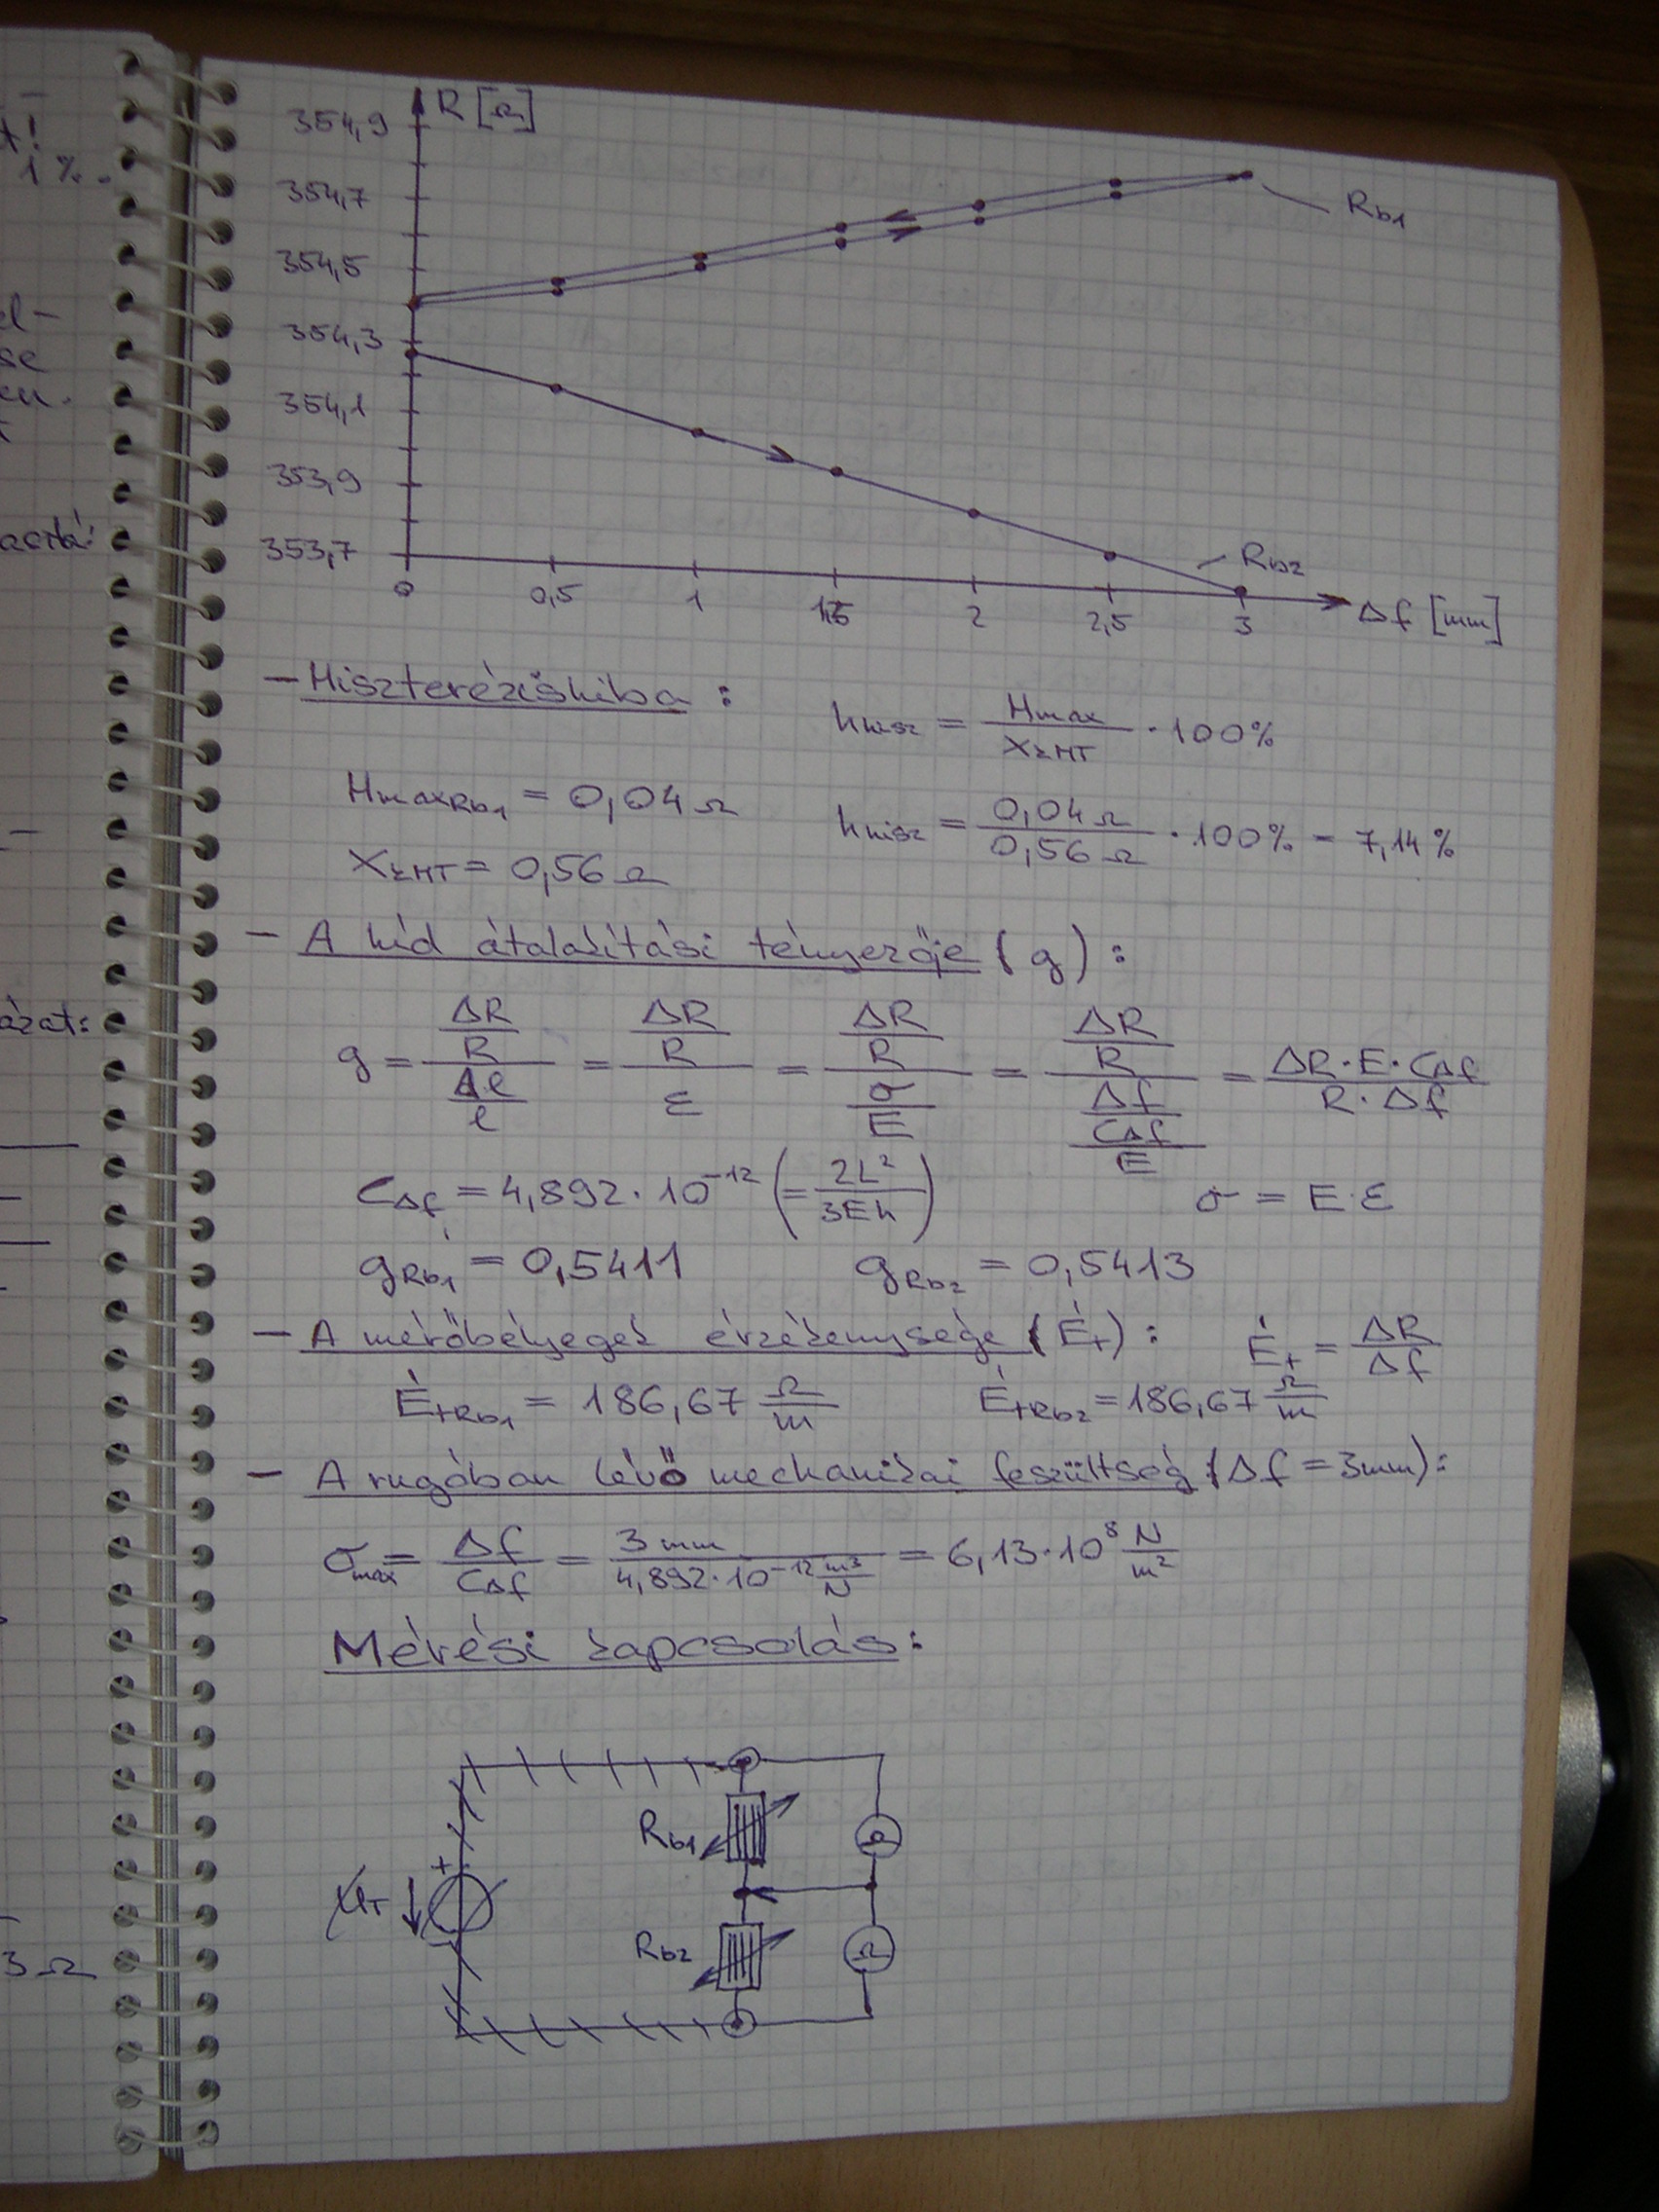 t!
1%.
el-
se
en.
t
ázat:
3 Ω
R [Ω]
354,9
354,7
354,5
354,3
354,1
353,9
353,7
Rb1
Rb2
0 0,5 1 1,5 2 2,5 3 Δf [mm]
- Hiszterézishiba :
hhisz = Hmax / XΣHT · 100%
HmaxRb1 = 0,04 Ω
hhisz = 0,04 Ω / 0,56 Ω · 100% = 7,14 %
XΣHT = 0,56 Ω
- A híd átalakítási tényezője (g) :
g = (ΔR/R) / (Δl/l) = (ΔR/R) / ε = (ΔR/R) / (σ/E) = (ΔR/R) / ((Δf/CΔf)/E) = ΔR·E·CΔf / R·Δf
CΔf = 4,892·10⁻¹² (= 2L² / 3Eh) σ = E·ε
gRb1 = 0,5411 gRb2 = 0,5413
- A mérőbélyegek érzékenysége (É+) : É+ = ΔR / Δf
É+Rb1 = 186,67 Ω/m É+Rb2 = 186,67 Ω/m
- A rugóban lévő mechanikai feszültség (Δf = 3mm) :
σmax = Δf / CΔf = 3 mm / 4,892·10⁻¹² m³/N = 6,13·10⁸ N/m²
Mérési kapcsolás :
Rb1
Ω
+
UT
-
Rb2
Ω